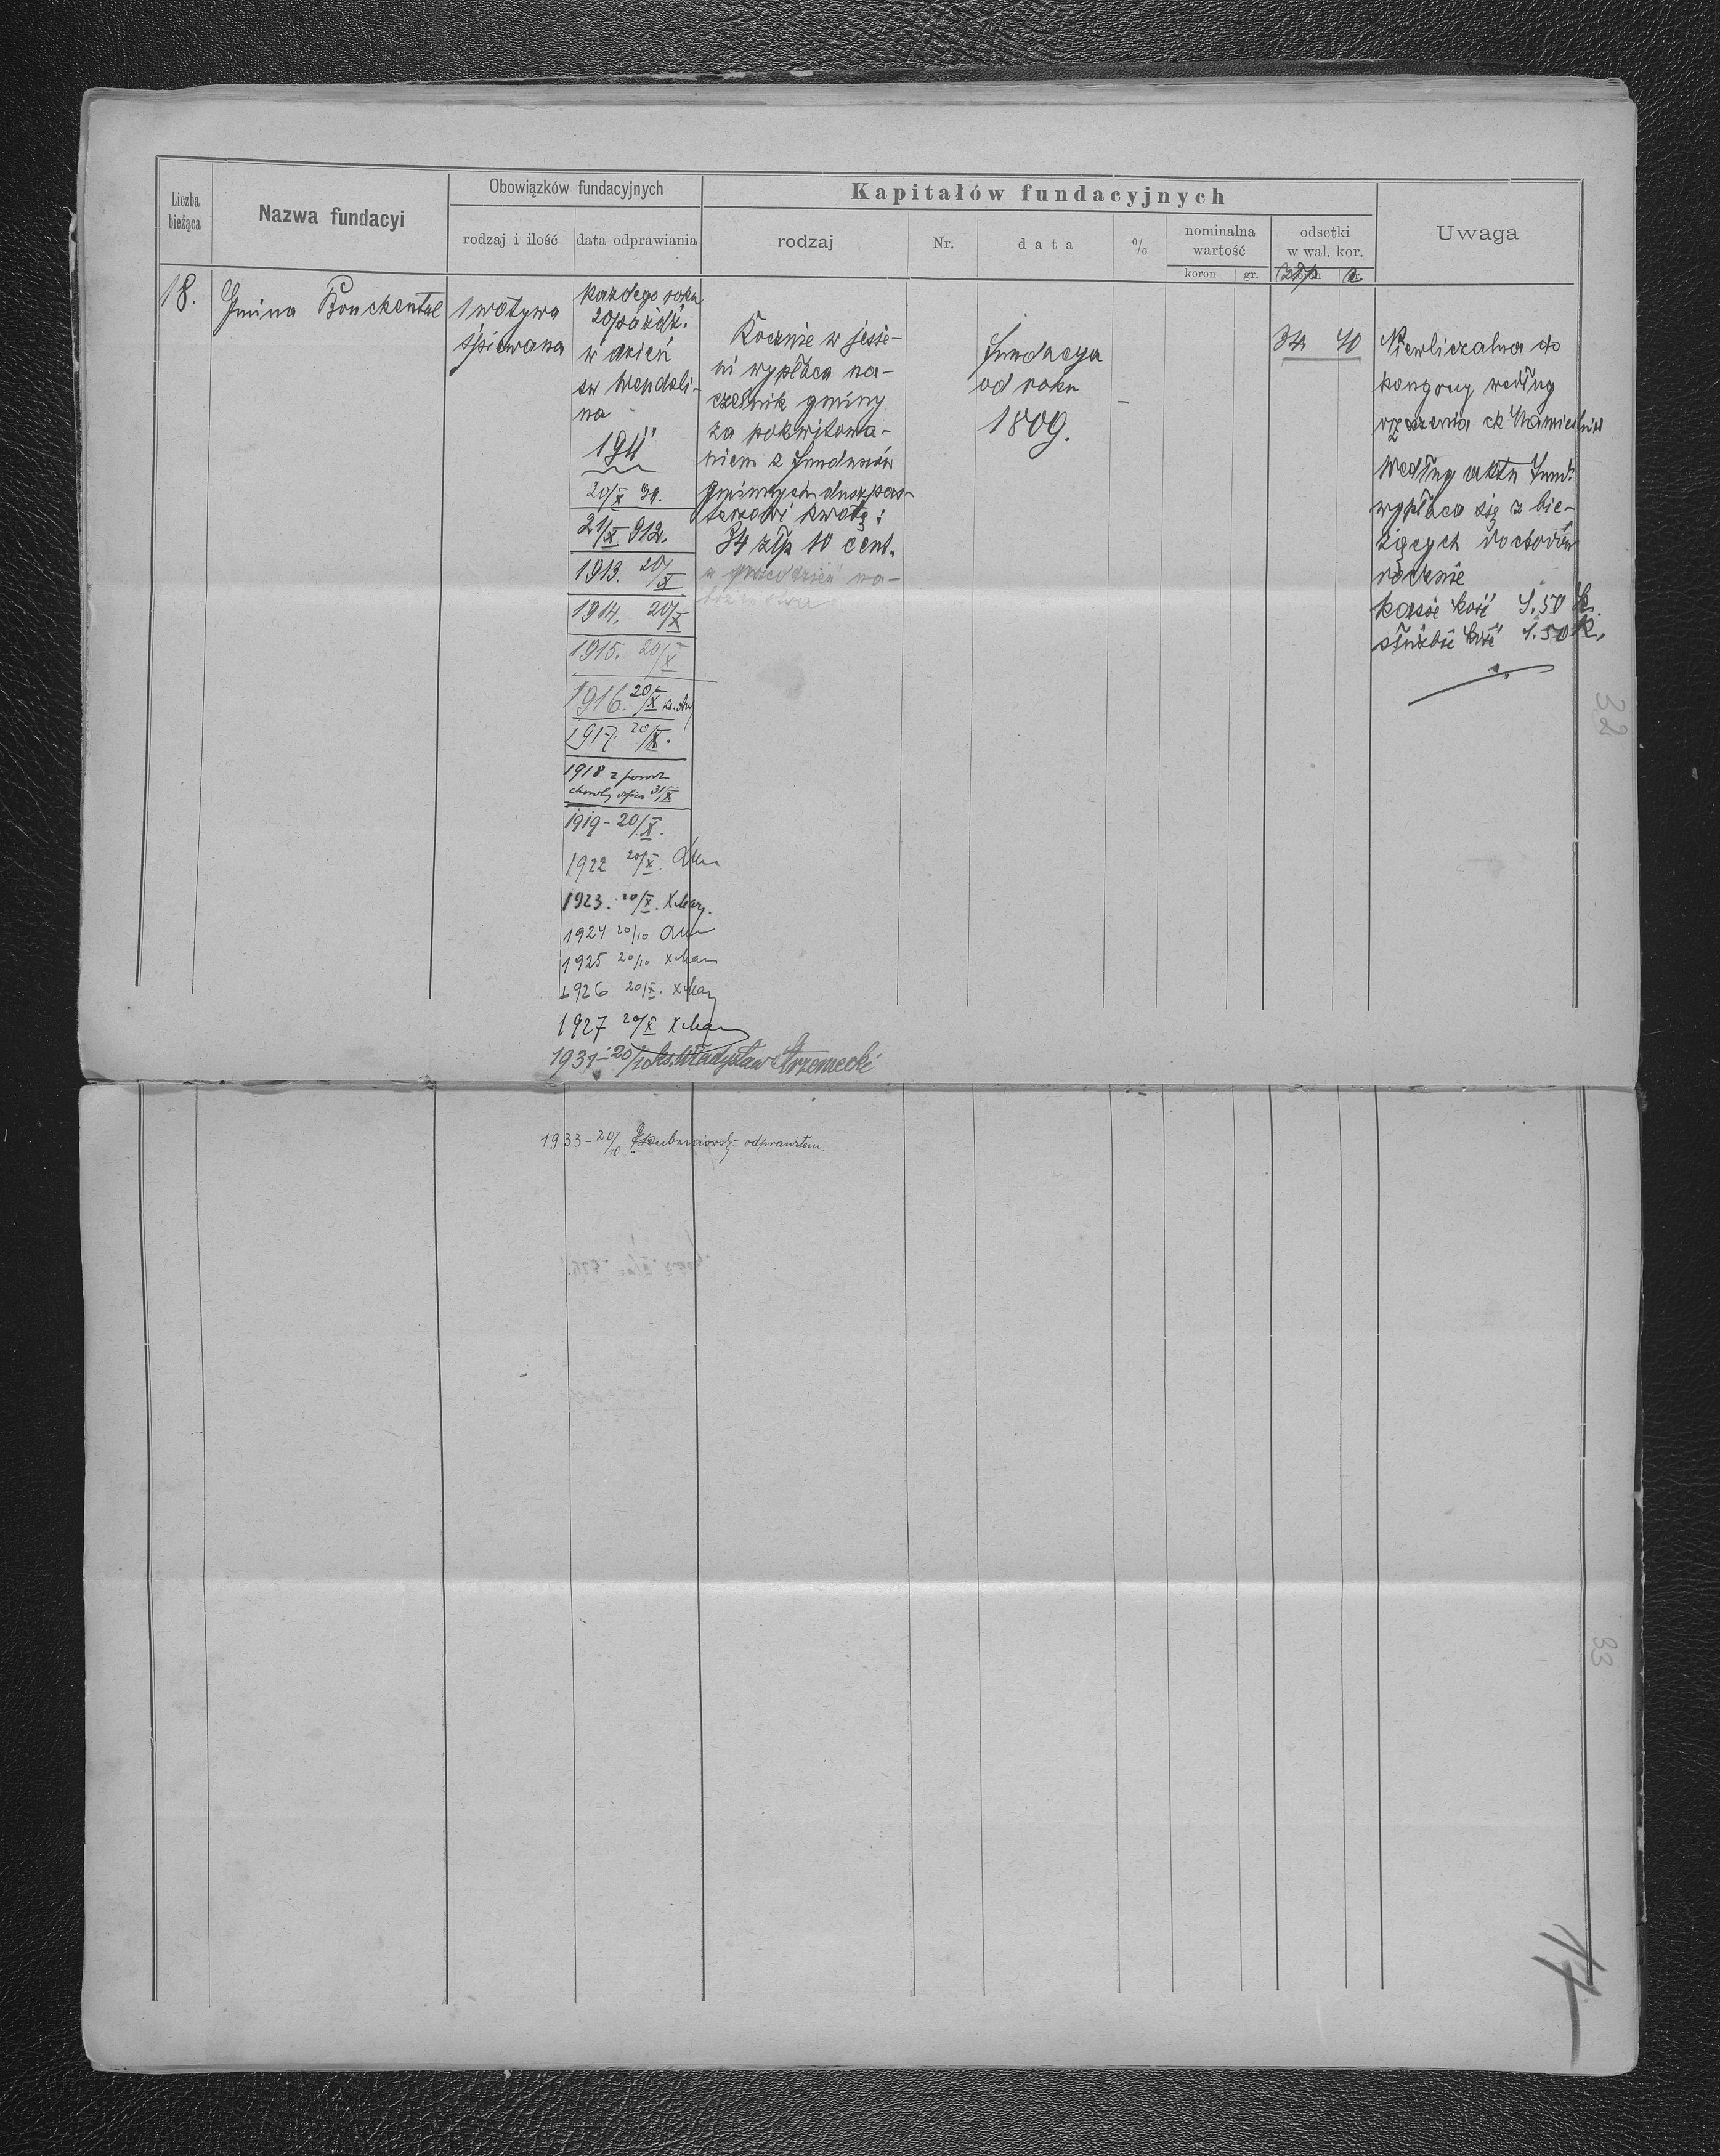 Liczba bieżąca
Nazwa fundacyi
Obowiązków fundacyjnych
rodzaj i ilość
data odprawiania
Kapitałów fundacyjnych
rodzaj
Nr.
data
%
nominalna wartość
koron gr.
odsetki w wal. kor.
Uwaga
18.
Gmina
1 wotywa
śpiewana
każdego roku
20/paźdź.
w dzień
św Wendeli-
na
1911
20/X
21/X 912.
1913. 20/X
1914. 20/X
1915. 20/X
1916. 20/X
1917. 20/X.
1918 z
31/X
1919 - 20/X.
1922 20/X.
1923. 20/X.
1924 20/10
1925 20/10
1926 20/X.
1927 20/X
1931 - 20/10 ks. Władysław
1933 - 20/10 odprawiłem.
Rocznie w jesie-
ni wypłaca na-
czelnik gminy
za pokwitowa-
niem z funduszów
gminnych duszpas-
terzowi kwotę:
34 złp 10 cent.
fundacya
od roku
1809.
–
34 40
Niewliczalna do
kongruy według
orzeczenia ck
Według aktu fund.
wypłaca się z bie-
żących dochodów
rocznie
kasie kość 1.50 k.
służbie kość 1.50 K.
32
33